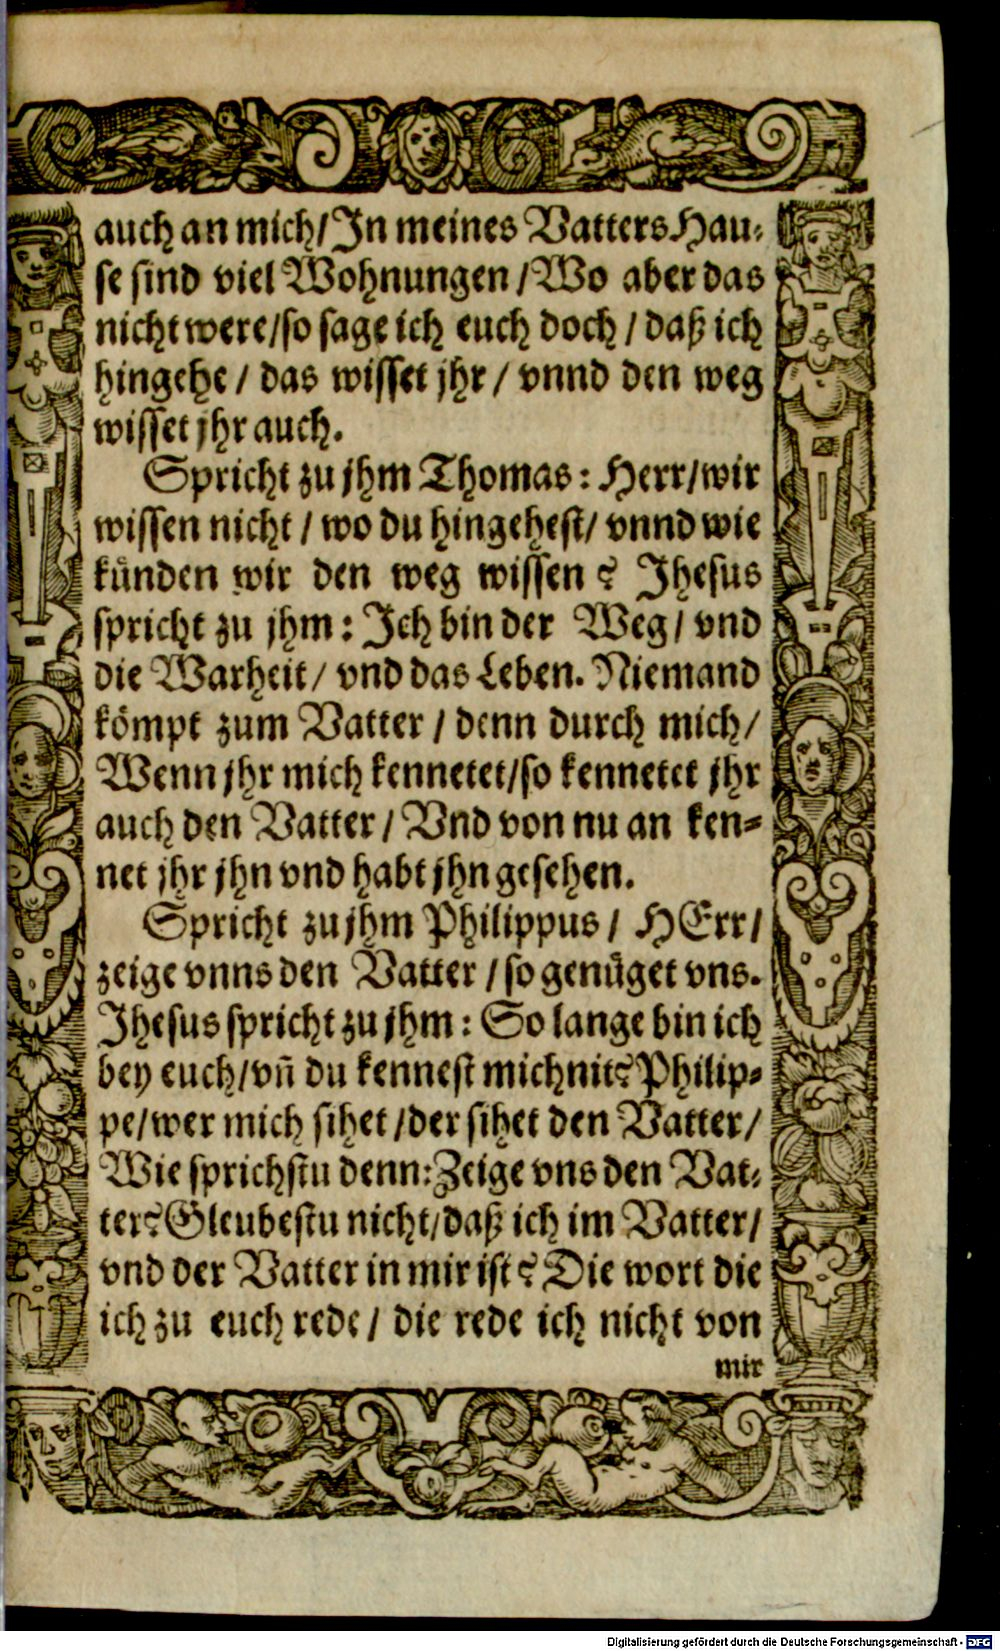 auch an mich/In meines Vatters Hau-
se sind viel Wohnungen/Wo aber das
nicht were/so sage ich euch doch/daß ich
hingehe/das wisset jhr/vnnd den weg
wisset jhr auch.
Spricht zu jhm Thomas: Herr/wir
wissen nicht/wo du hingehest/vnnd wie
künden wir den weg wissen? Jhesus
spricht zu jhm: Ich bin der Weg/vnd
die Warheit/vnd das Leben. Niemand
kömpt zum Vatter/denn durch mich/
Wenn jhr mich kennetet/so kennetet jhr
auch den Vatter/Vnd von nu an ken-
net jhr jhn vnd habt jhn gesehen.
Spricht zu jhm Philippus/HErr/
zeige vnns den Vatter/so genüget vns.
Jhesus spricht zu jhm: So lange bin ich
bey euch/vñ du kennest mich nit? Philip-
pe/wer mich sihet/der sihet den Vatter/
Wie sprichstu denn: Zeige vns den Vat-
ter? Gleubestu nicht/daß ich im Vatter/
vnd der Vatter in mir ist? Die wort die
ich zu euch rede/die rede ich nicht von
mir
Digitalisierung gefördert durch die Deutsche Forschungsgemeinschaft - DFG